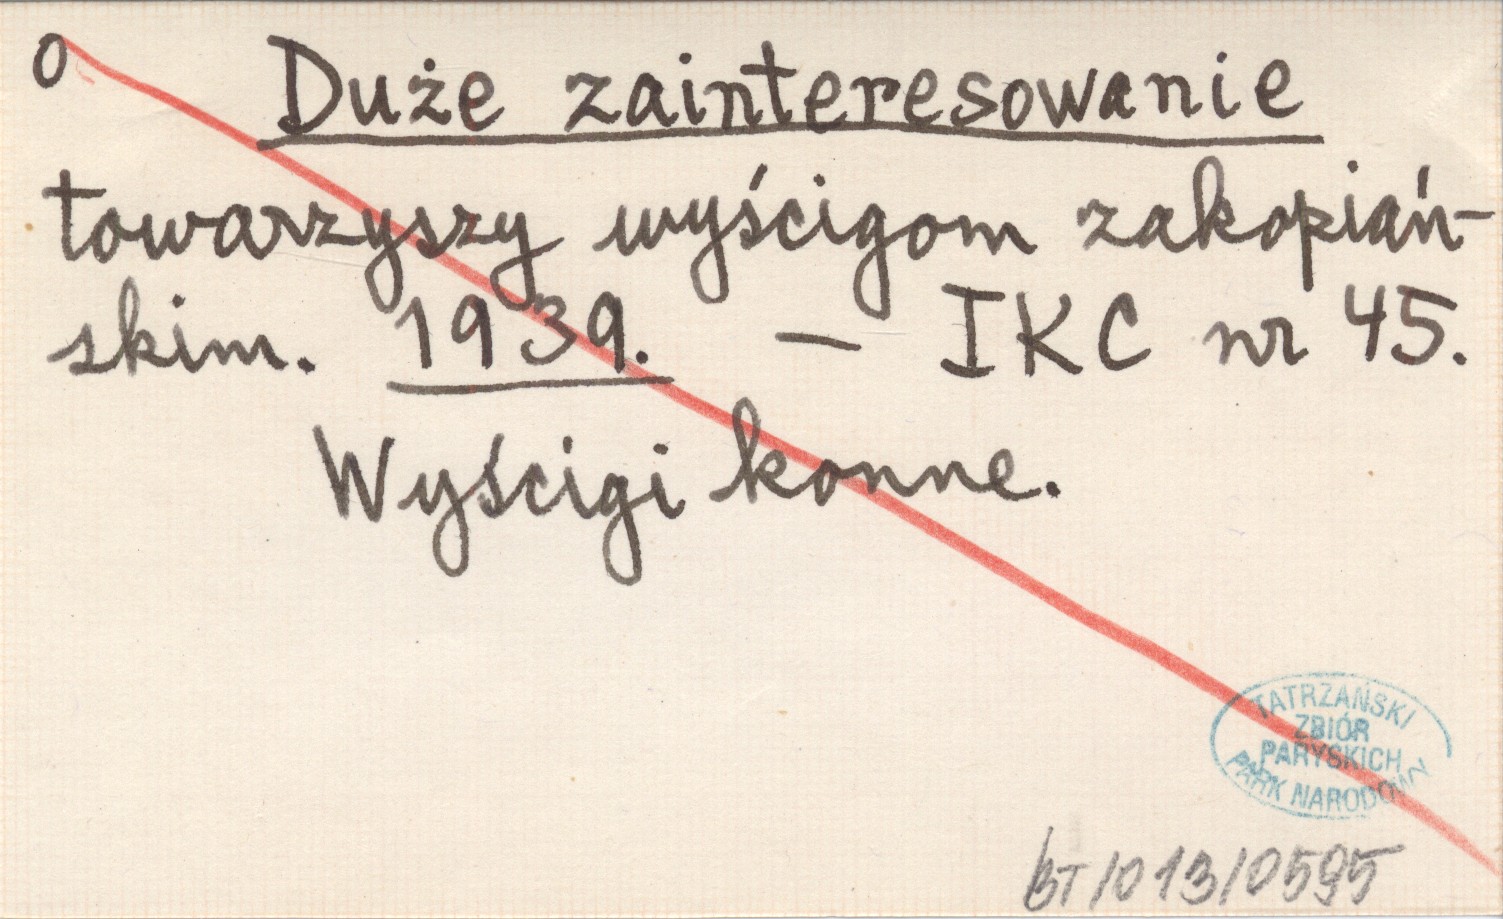 o Duże zainteresowanie
towarzyszy wyścigom zakopiań-
skim. 1939. — IKC nr 45.
Wyścigi konne.
TATRZAŃSKI
ZBIÓR
PARYSKICH
PARK NARODOWY
BT/013/0595